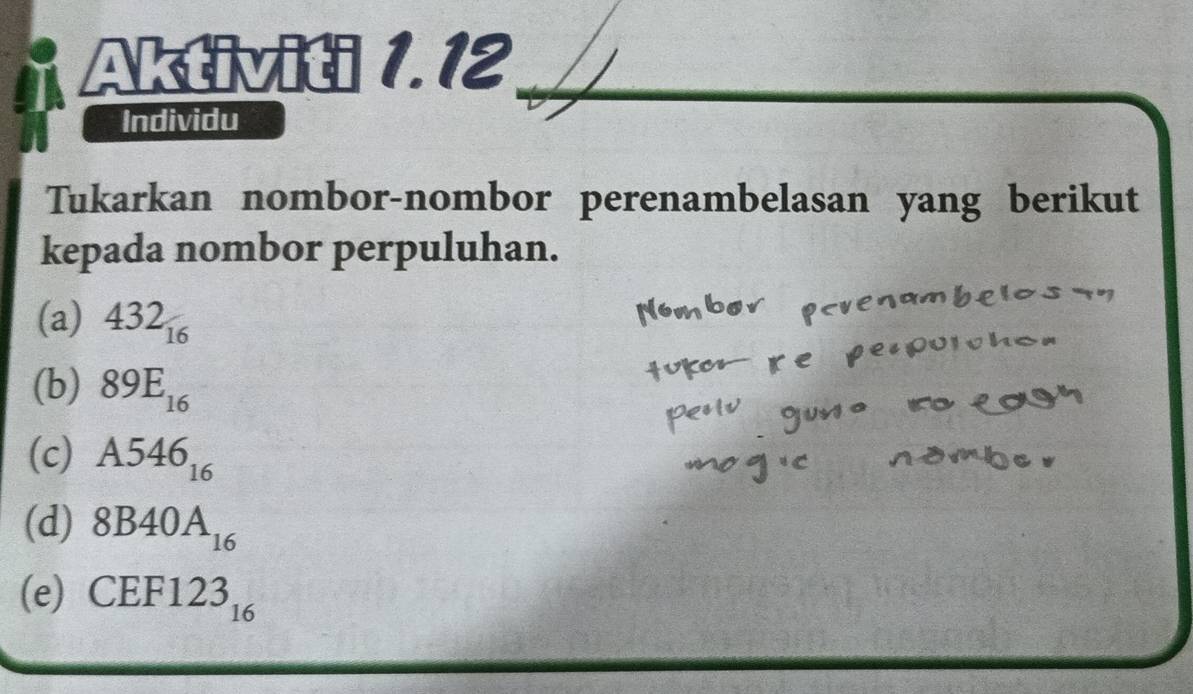 Aktiviti 1.12
Individu
Tukarkan nombor-nombor perenambelasan yang berikut
kepada nombor perpuluhan.
(a) 432₁₆
(b) 89E₁₆
(c) A546₁₆
(d) 8B40A₁₆
(e) CEF123₁₆
Nombor perenambelasan
tukar ke perpuluhan
perlu guna
magic nombor